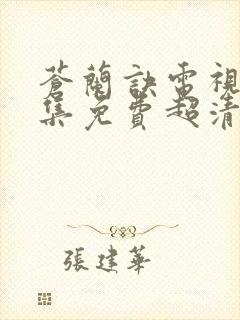 蒼蘭訣電視
集免費超清
張建華